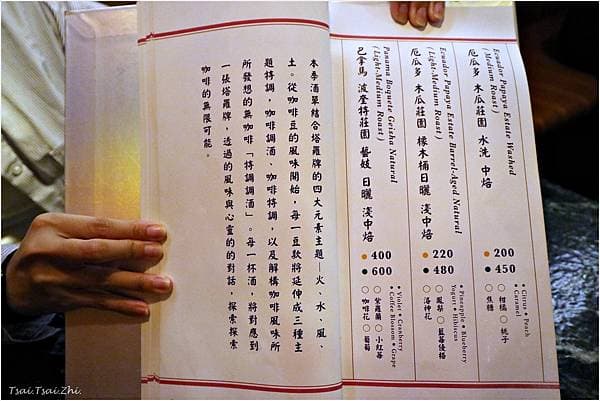 Ecuador Papaya Estate Washed
( Medium Roast )
厄瓜多 木瓜莊園 水洗 中焙
200
450
• Citrus • Peach
• Caramel
○ 柑橘 ○ 桃子
○ 焦糖
Ecuador Papaya Estate Barrel-Aged Natural
( Light-Medium Roast )
厄瓜多 木瓜莊園 橡木桶日曬 淺中焙
220
480
• Pineapple • Blueberry
Yogurt • Hibiscus
○ 鳳梨 ○ 藍莓優格
○ 洛神花
Panama Boquete Geisha Natural
( Light-Medium Roast )
巴拿馬 波奎特莊園 藝妓 日曬 淺中焙
400
600
• Violet • Cranberry
• Coffee Blossom • Grape
○ 紫羅蘭 ○ 小紅莓
○ 咖啡花 ○ 葡萄
本季酒單結合塔羅牌的四大元素主題—火、水、風、
土。從咖啡豆的風味開始，每一豆款將延伸成三種主
題特調，咖啡調酒、咖啡特調，以及解構咖啡風味所
所發想的無咖啡「特調調酒」。每一杯酒，將對應到
一張塔羅牌，透過的風味與心靈的的對話，探索探索
咖啡的無限可能。
Tsai.Tsai.Zhi.